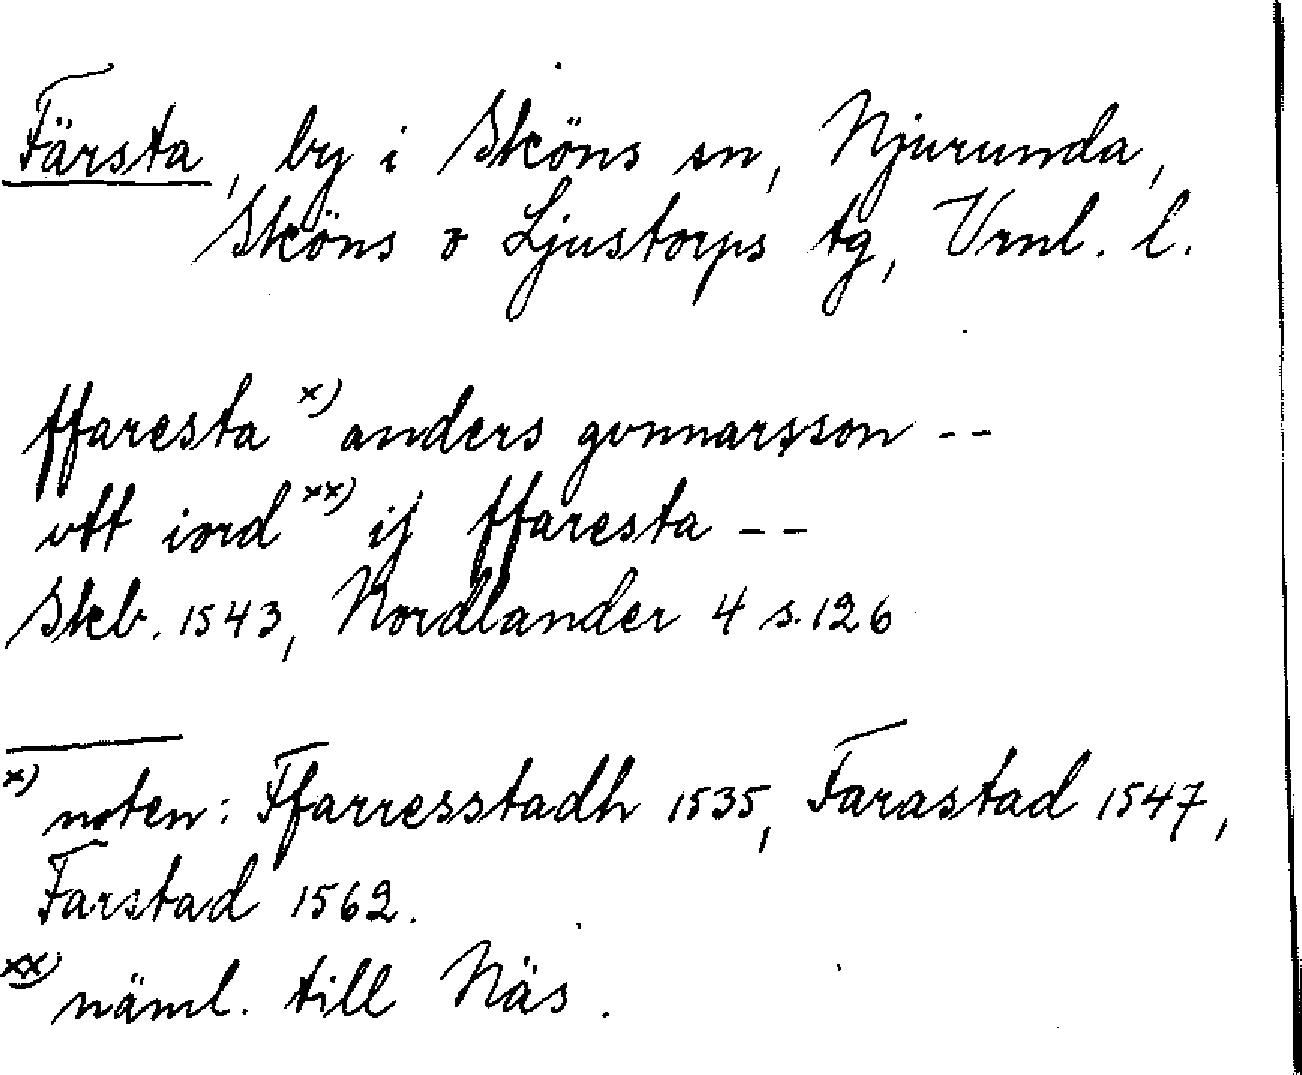 Färsta, by i Sköns sn, Njurunda,
Sköns o Ljustorps tg, Vrnl. l.
ffaresta x) anders gvnnarsson --
vtt iord xx) ij ffaresta --
Skb. 1543, Nordlander 4 s. 126
x) noten: Ffarresstadh 1535, Farastad 1547,
Farstad 1562.
xx) näml. till Näs.